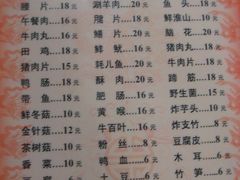 腰片......18元 涮羊肉......20元 鱼头......18元
午餐肉......16元 腊片......18元 鲜淮山......10元
牛肉丸......16元 鲜鱿......16元 脑花......20元
田鸡......18元 鲜鱿......16元 猪肉丸......16元
猪肉片......15元 耗儿鱼......20元 牛肉片......18元
鸭肠......18元 酥肉......20元 蹄筋......18元
带鱼......18元 肥肠......18元 野生菌......15元
鲜冬菇......10元 黄喉......16元 炸芋头......10元
金针菇......12元 牛百叶......16元 炸支竹......8元
茶树菇......10元 粉丝......8元 豆腐皮......8元
香菜......10元 鸭血......8元 木耳......8元
土豆......8元 竹笋......8元